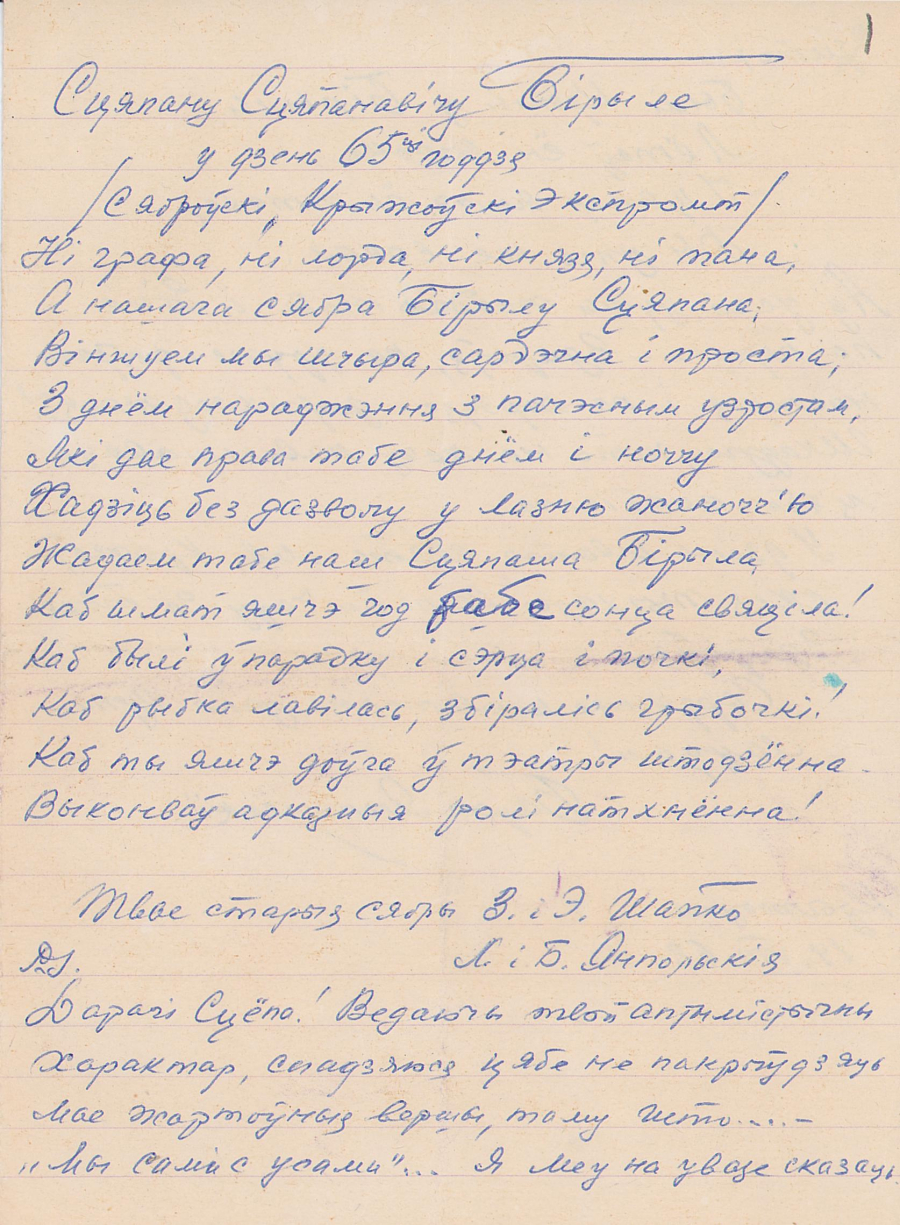 1
Сцяпану Сцяпанавічу Бірыле
у дзень 65ці годдзя
/Сяброўскі, Крыжоўскі Экспромт/.
Ні графа, ні лорда, ні князя, ні пана,
А нашага сябра Бірылу Сцяпана;
Віншуем мы шчыра, сардэчна і проста;
З днём нараджэння з пачэсным узростам,
Які дае права табе днём і ноччу
Хадзіць без дазволу у лазню жаночч'ю
Жадаем табе наш Сцяпаша Бірыла,
Каб шмат яшчэ год табе сонца свяціла!
Каб былі ў парадку і сэрца і почкі,
Каб рыбка лавілась, збіралісь грыбочкі!
Каб ты яшчэ доўга ў тэатры штодзённа
Выконваў адказныя ролі натхнённа!
Твае старыя сябры З. і Э. Шапко
P.S. Л. і Б. Янпольскія
Дарагі Сцёпа! Ведаючы твой аптымістычны
характар, спадзяюся цябе не пакрыўдзяць
мае жартоўныя вершы, таму што....-
"Мы самі с усамі"... Я меу на увазе сказаць